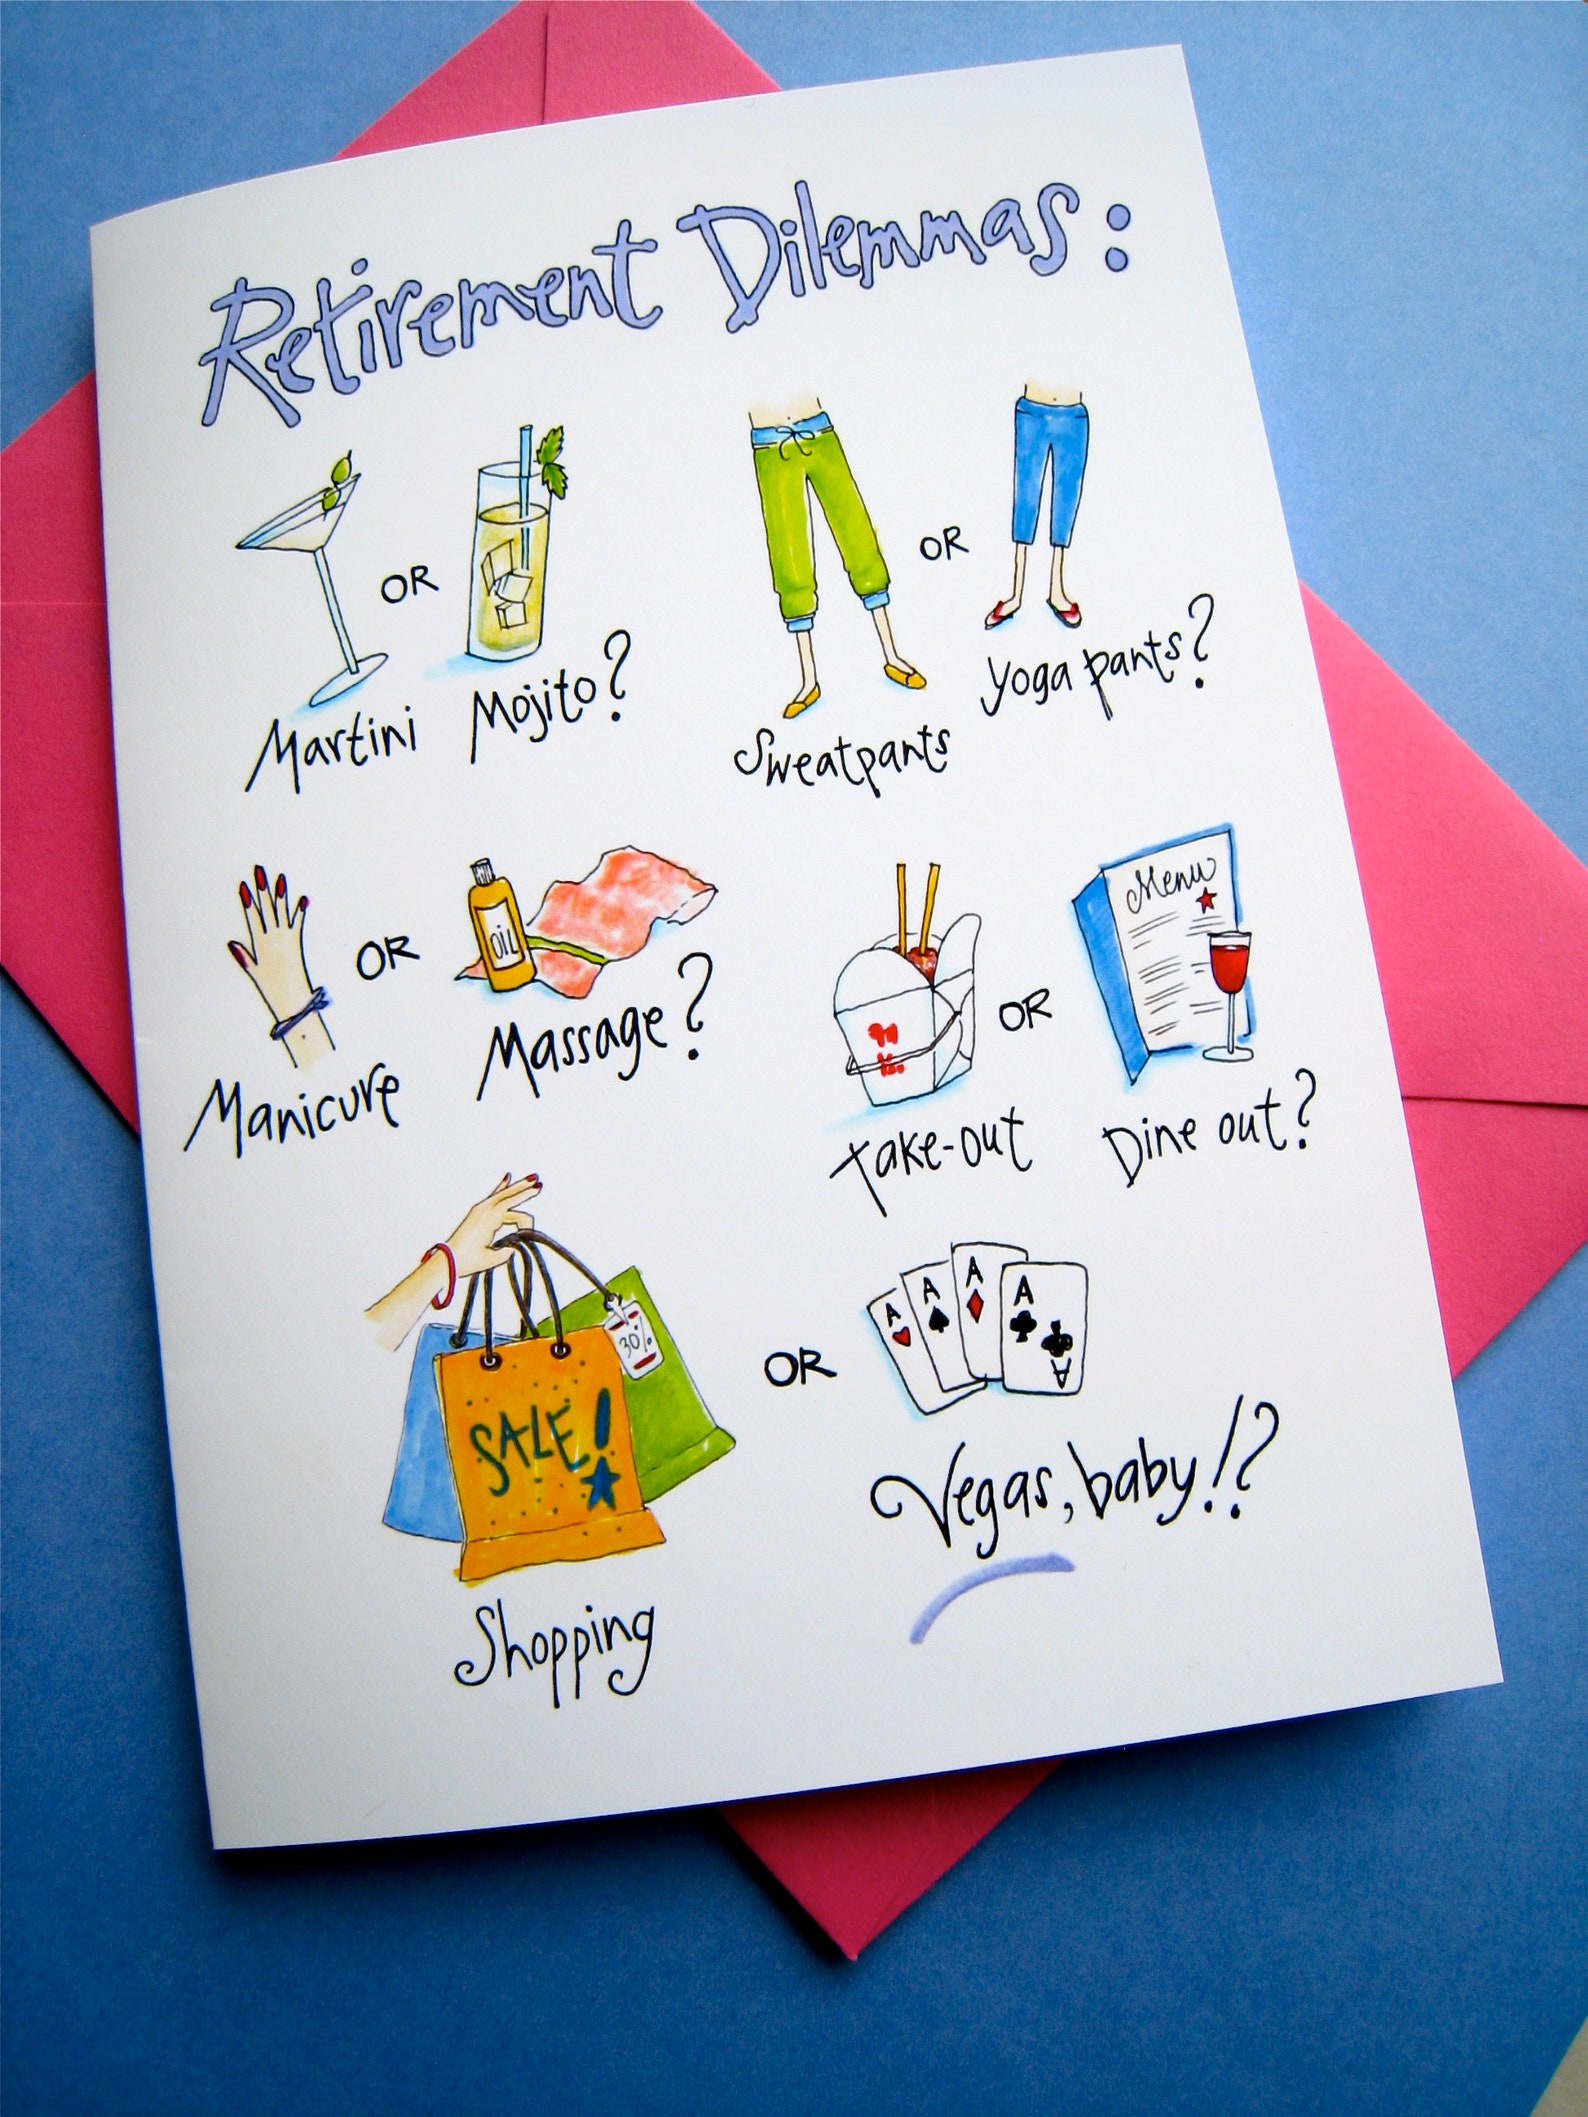 Retirement Dilemmas:
Martini OR Mojito?
Sweatpants OR Yoga pants?
Manicure OR Massage?
OIL
Take-out OR Dine out?
Menu
Shopping OR Vegas, baby!?
SALE!
30%
A A A A
A